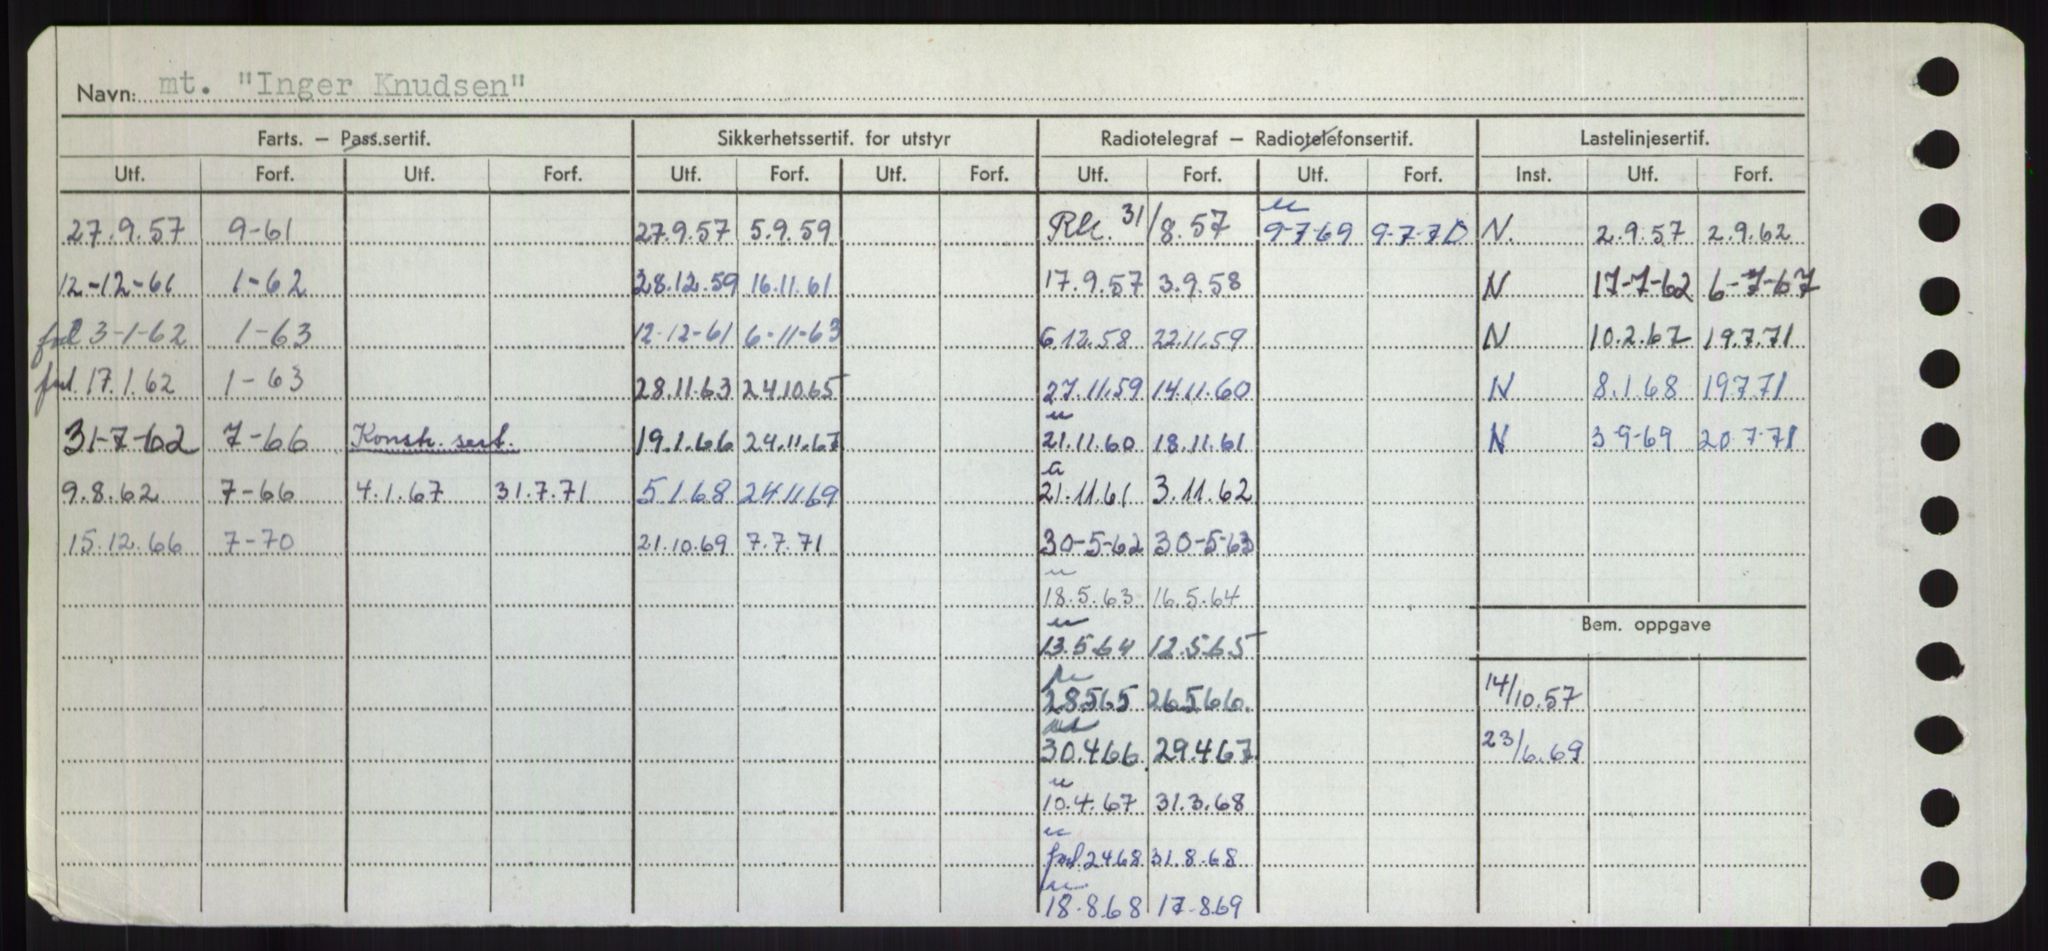 Navn: mt. "Inger Knudsen"
Farts. — Pass.sertif. Sikkerhetssertif. for utstyr Radiotelegraf — Radiotelefonsertif. Lastelinjesertif.
Utf. Forf. Utf. Forf. Utf. Forf. Utf. Forf. Utf. Forf. Utf. Forf. Inst. Utf. Forf.
27.9.57 9-61 27.9.57 5.9.59 31/8.57 9-7-69 9-7-70 N. 2.9.57 2.9.62
12-12-61 1-62 28.12.59 16.11.61 17.9.57 3.9.58 N 17-7-62 6-7-67
3-1-62 1-63 12-12-61 6-11-63 6.12.58 22.11.59 N 10.2.67 19.7.71
17.1.62 1-63 28.11.63 24.10.65 27.11.59 14.11.60 N 8.1.68 19.7.71
31-7-62 7-66 Konstr. sert. 19.1.66 24.11.67 21.11.60 18.11.61 N 3-9-69 20-7-71
9.8.62 7-66 4.1.67 31.7.71 5.1.68 24.11.69 21.11.61 3.11.62
15.12.66 7-70 21.10.69 7.7.71 30-5-62 30-5-63
18.5.63 16.5.64
Bem. oppgave
13.5.64 12.5.65
28.5.65 26.5.66. 14/10.57
30.4.66 29.4.67 23/6.69
10.4.67 31.3.68
2.4.68 31.8.68
18.8.68 17.8.69